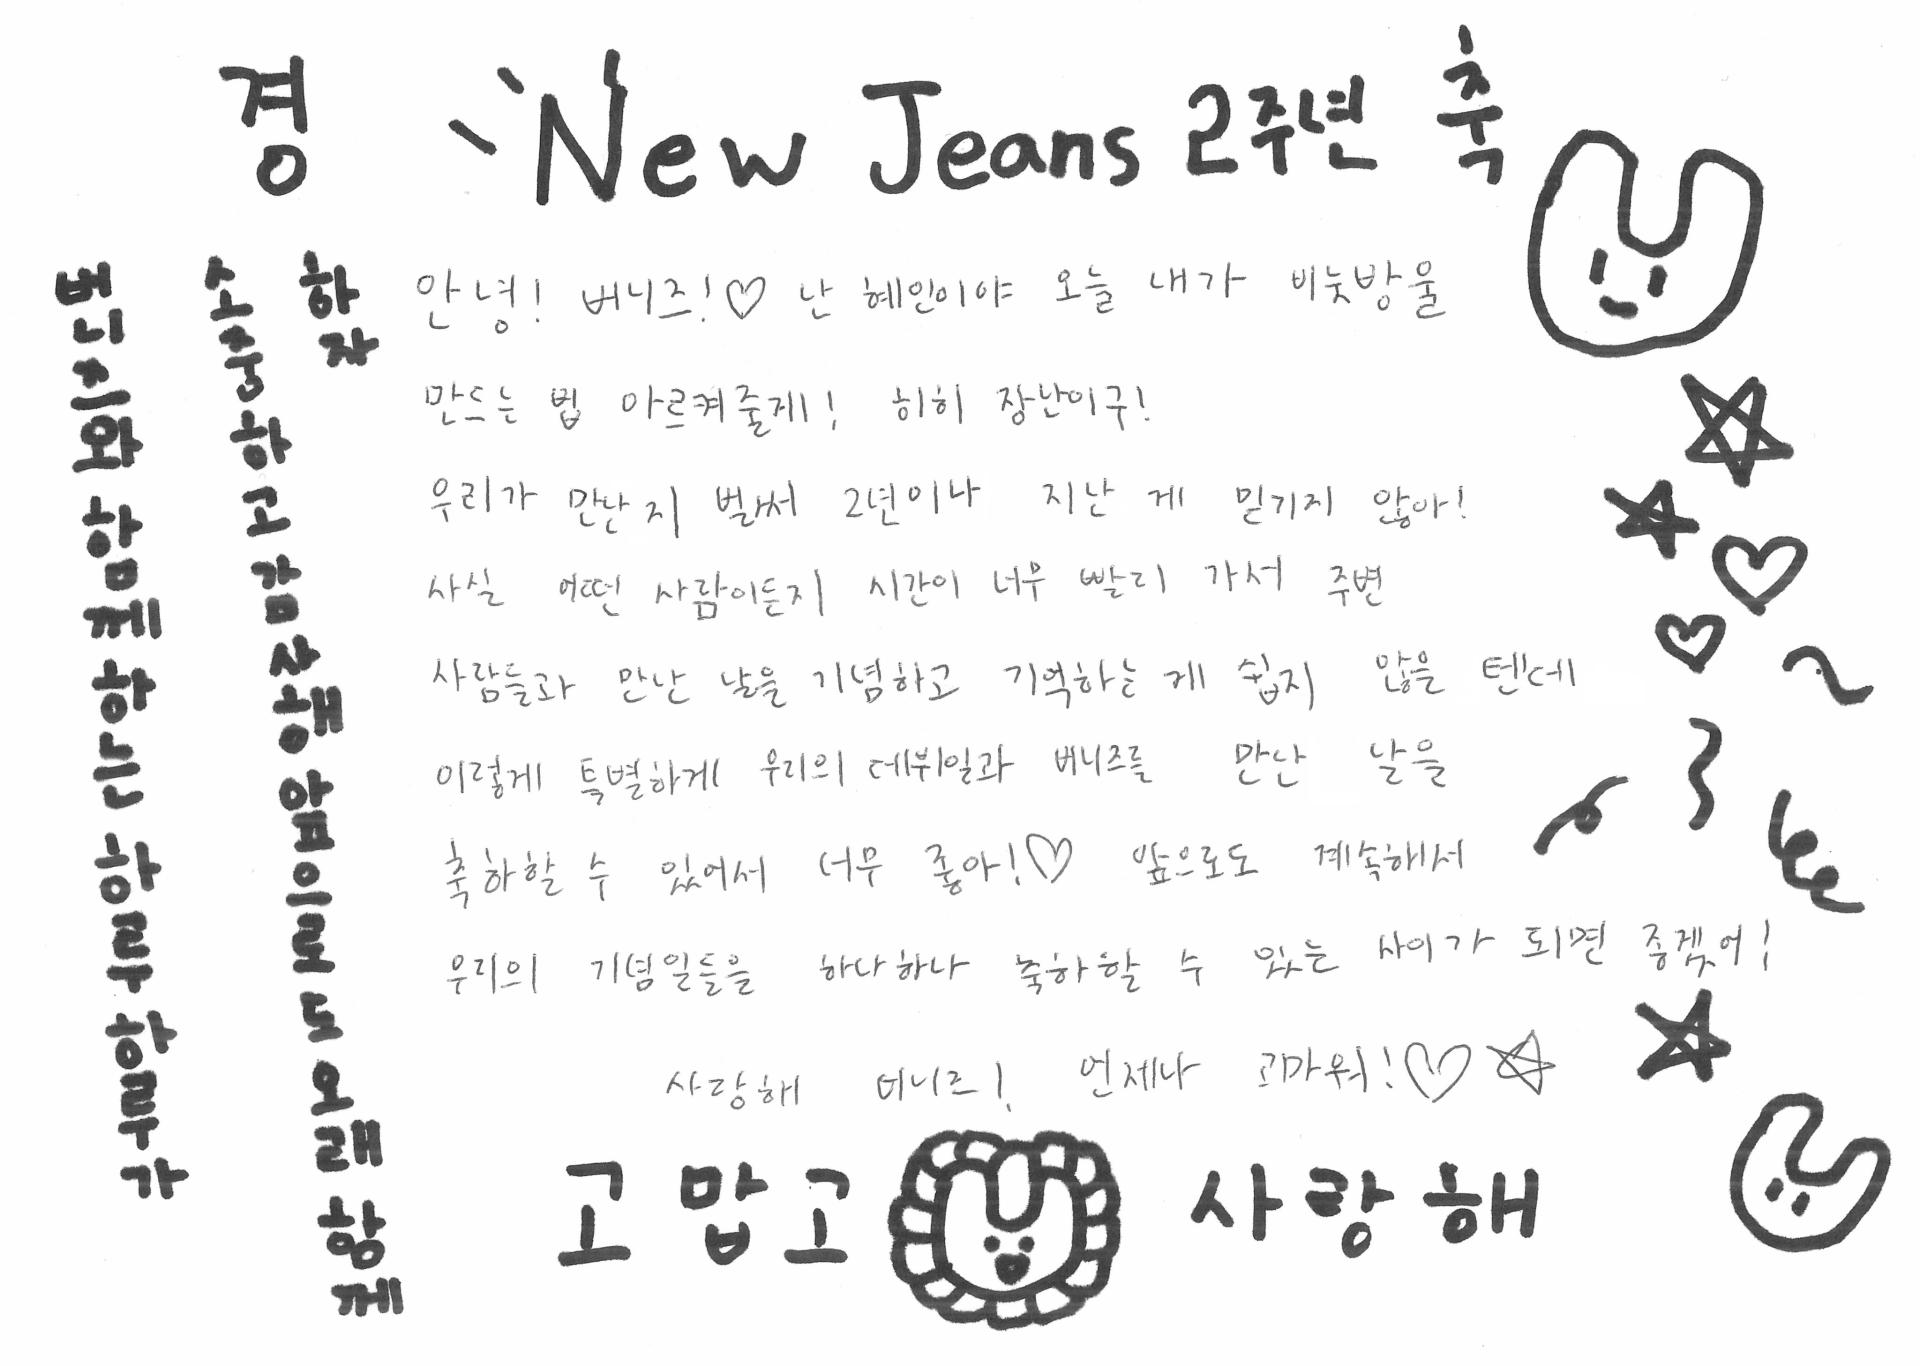 경 New Jeans 2주년 축
버니즈와 함께 하는 하루하루가
소중하고 감사해 앞으로도 오래 함께
하자
안녕! 버니즈!♡ 난 혜인이야 오늘 내가 비눗방울
만드는 법 아르켜줄게! 히히 장난이구!
우리가 만난지 벌써 2년이나 지난 게 믿기지 않아!
사실 어떤 사람이든지 시간이 너무 빨리 가서 주변
사람들과 만난 날을 기념하고 기억하는 게 쉽지 않을 텐데
이렇게 특별하게 우리의 데뷔일과 버니즈를 만난 날을
축하할 수 있어서 너무 좋아!♡ 앞으로도 계속해서
우리의 기념일들을 하나하나 축하할 수 있는 사이가 되면 좋겠어!
사랑해 버니즈! 언제나 고마워!♡☆
고맙고 사랑해